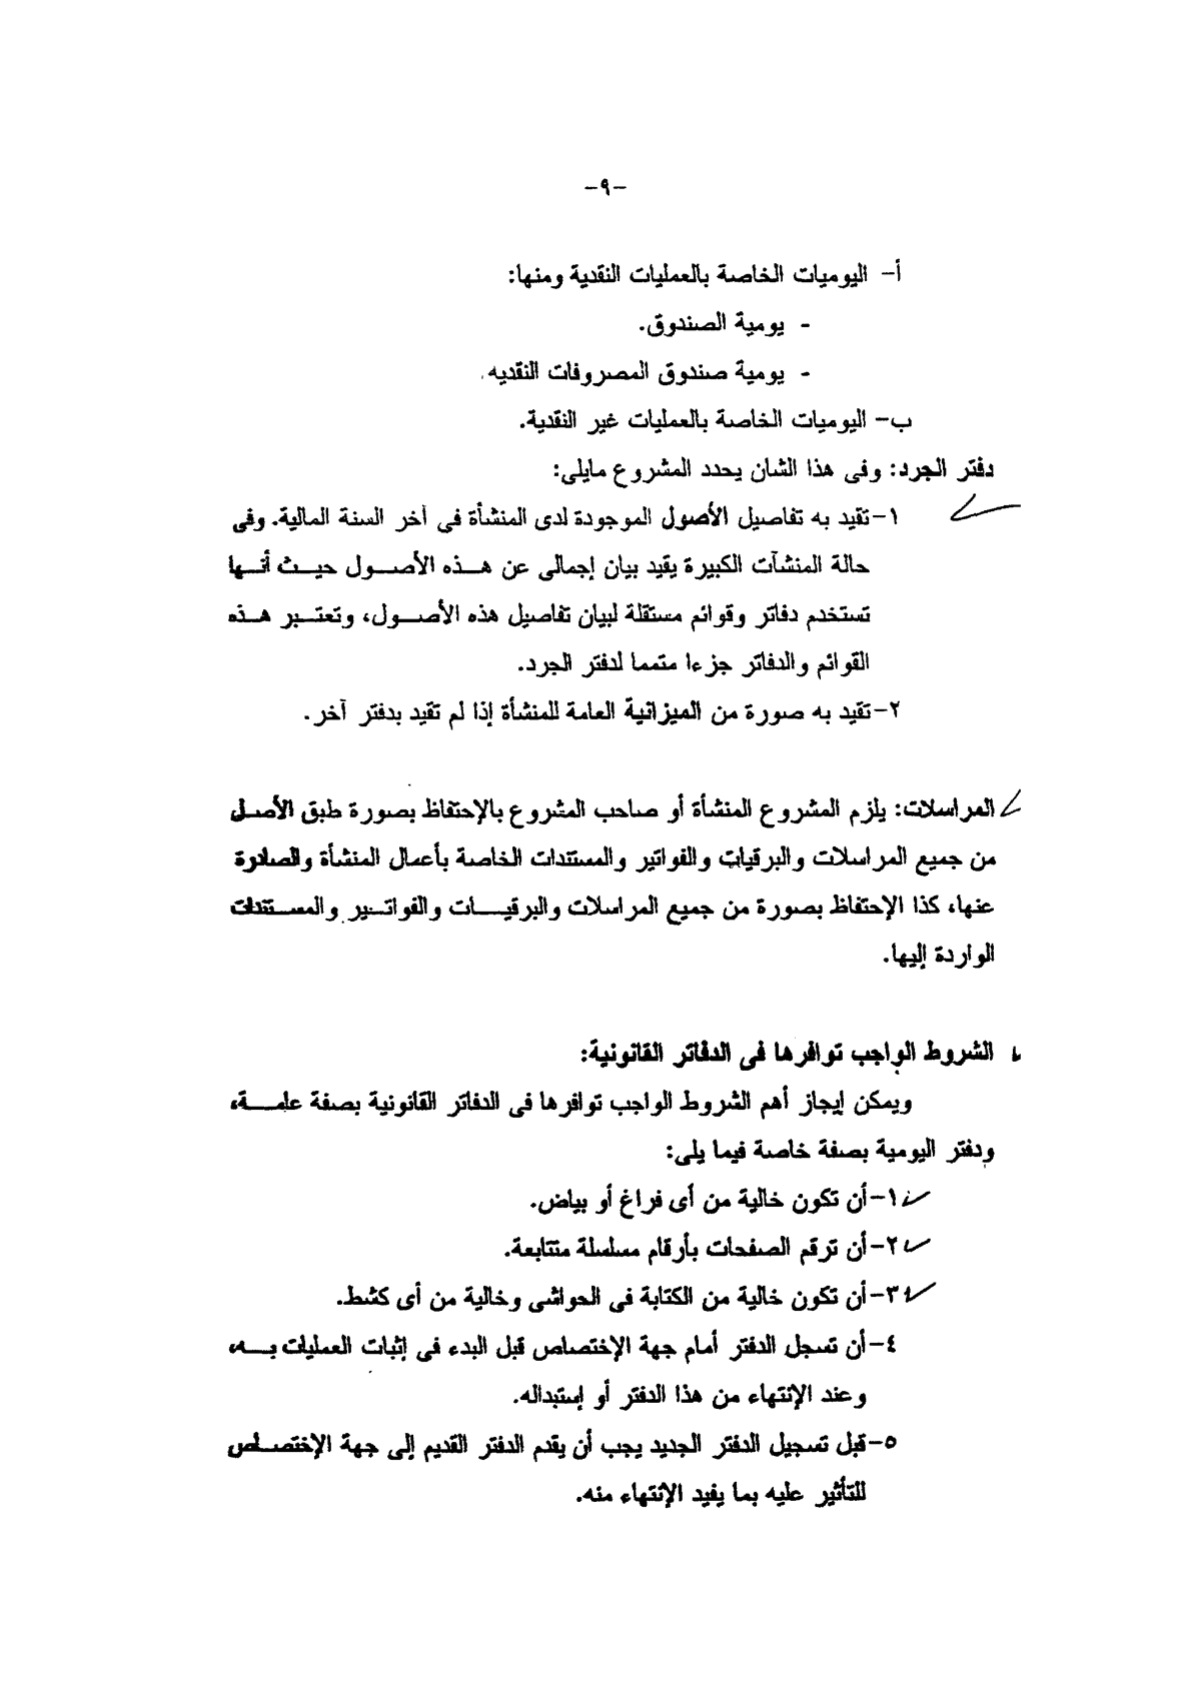 -٩-
أ- اليوميات الخاصة بالعمليات النقدية ومنها:
- يومية الصندوق.
- يومية صندوق المصروفات النقديه.
ب- اليوميات الخاصة بالعمليات غير النقدية.
دفتر الجرد: وفى هذا الشان يحدد المشروع مايلى:
١-تقيد به تفاصيل الأصول الموجودة لدى المنشأة في آخر السنة المالية. وفى
حالة المنشآت الكبيرة يقيد بيان إجمالى عن هـــذه الأصـــول حيـــث أنـــها
تستخدم دفاتر وقوائم مستقلة لبيان تفاصيل هذه الأصـــول، وتعتـــبر هـــذه
القوائم والدفاتر جزءا متمما لدفتر الجرد.
٢-تقيد به صورة من الميزانية العامة للمنشأة إذا لم تقيد بدفتر آخر.
المراسلات: يلزم المشروع المنشأة أو صاحب المشروع بالإحتفاظ بصورة طبق الأصـل
من جميع المراسلات والبرقيات والفواتير والمستندات الخاصة بأعمال المنشأة والصادرة
عنها، كذا الإحتفاظ بصورة من جميع المراسلات والبرقيـــات والفواتـير والمســـتندات
الواردة إليها.
الشروط الواجب توافرها فى الدفاتر القانونية:
ويمكن إيجاز أهم الشروط الواجب توافرها فى الدفاتر القانونية بصفة عامـــة،
ودفتر اليومية بصفة خاصة فيما يلى:
١-أن تكون خالية من أى فراغ أو بياض.
٢-أن ترقم الصفحات بأرقام مسلسلة متتابعة.
٣-أن تكون خالية من الكتابة فى الحواشى وخالية من أى كشط.
٤-أن تسجل الدفتر أمام جهة الإختصاص قبل البدء فى إثبات العمليات بـــه،
وعند الإنتهاء من هذا الدفتر أو إستبداله.
٥-قبل تسجيل الدفتر الجديد يجب أن يقدم الدفتر القديم إلى جهة الإختصـــاص
للتأثير عليه بما يفيد الإنتهاء منه.